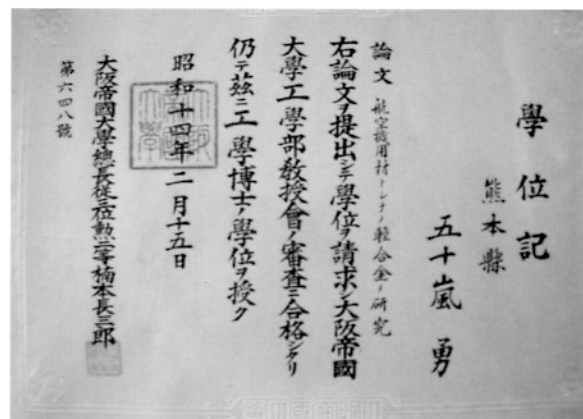 學位記
熊本縣
五十嵐 勇
論文 航空機用材トシテノ輕合金ノ研究
右論文ヲ提出シテ學位ヲ請求シ大阪帝國
大學工學部教授會ノ審査ニ合格シタリ
仍テ茲ニ工學博士ノ學位ヲ授ク
昭和十四年二月十五日
大阪帝國大學總長從三位勲二等楠本長三郎
第六四八號